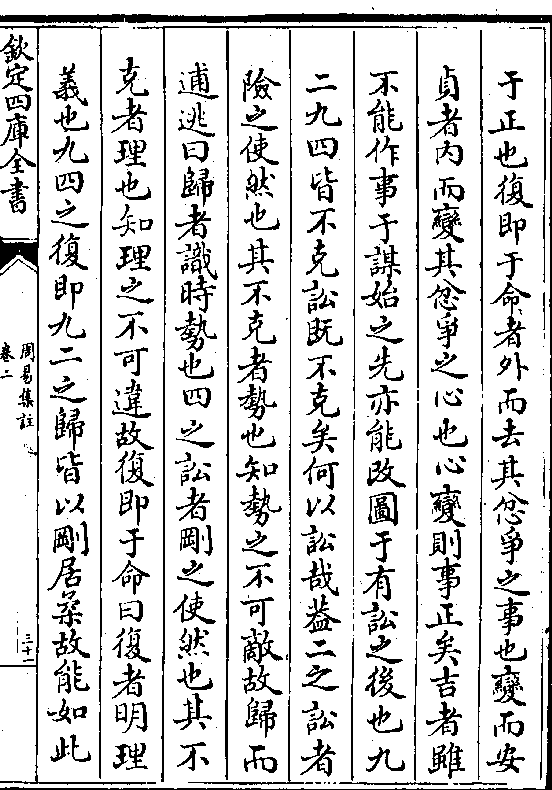 于正也復即于命者外而去其忿爭之事也變而安
貞者内而變其忿爭之心也心變則事正矣吉者雖
不能作事于謀始之先亦能改圖于有訟之後也九
二九四皆不克訟既不克矣何以訟哉葢二之訟者
險之使然也其不克者勢也知勢之不可敵故歸而
逋逃曰歸者識時勢也四之訟者剛之使然也其不
克者理也知理之不可違故復即于命曰復者明理
義也九四之復即九二之歸皆以剛居柔故能如此
欽定四庫全書
周易集註
卷二
三十一